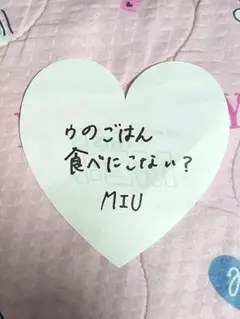 ウのごはん
食べにこない？
MIU